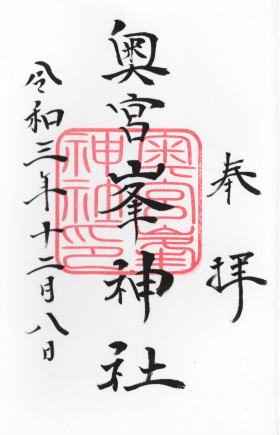 奉拝
奥宮峯神社
令和三年十二月八日
奥宮峯
神社印